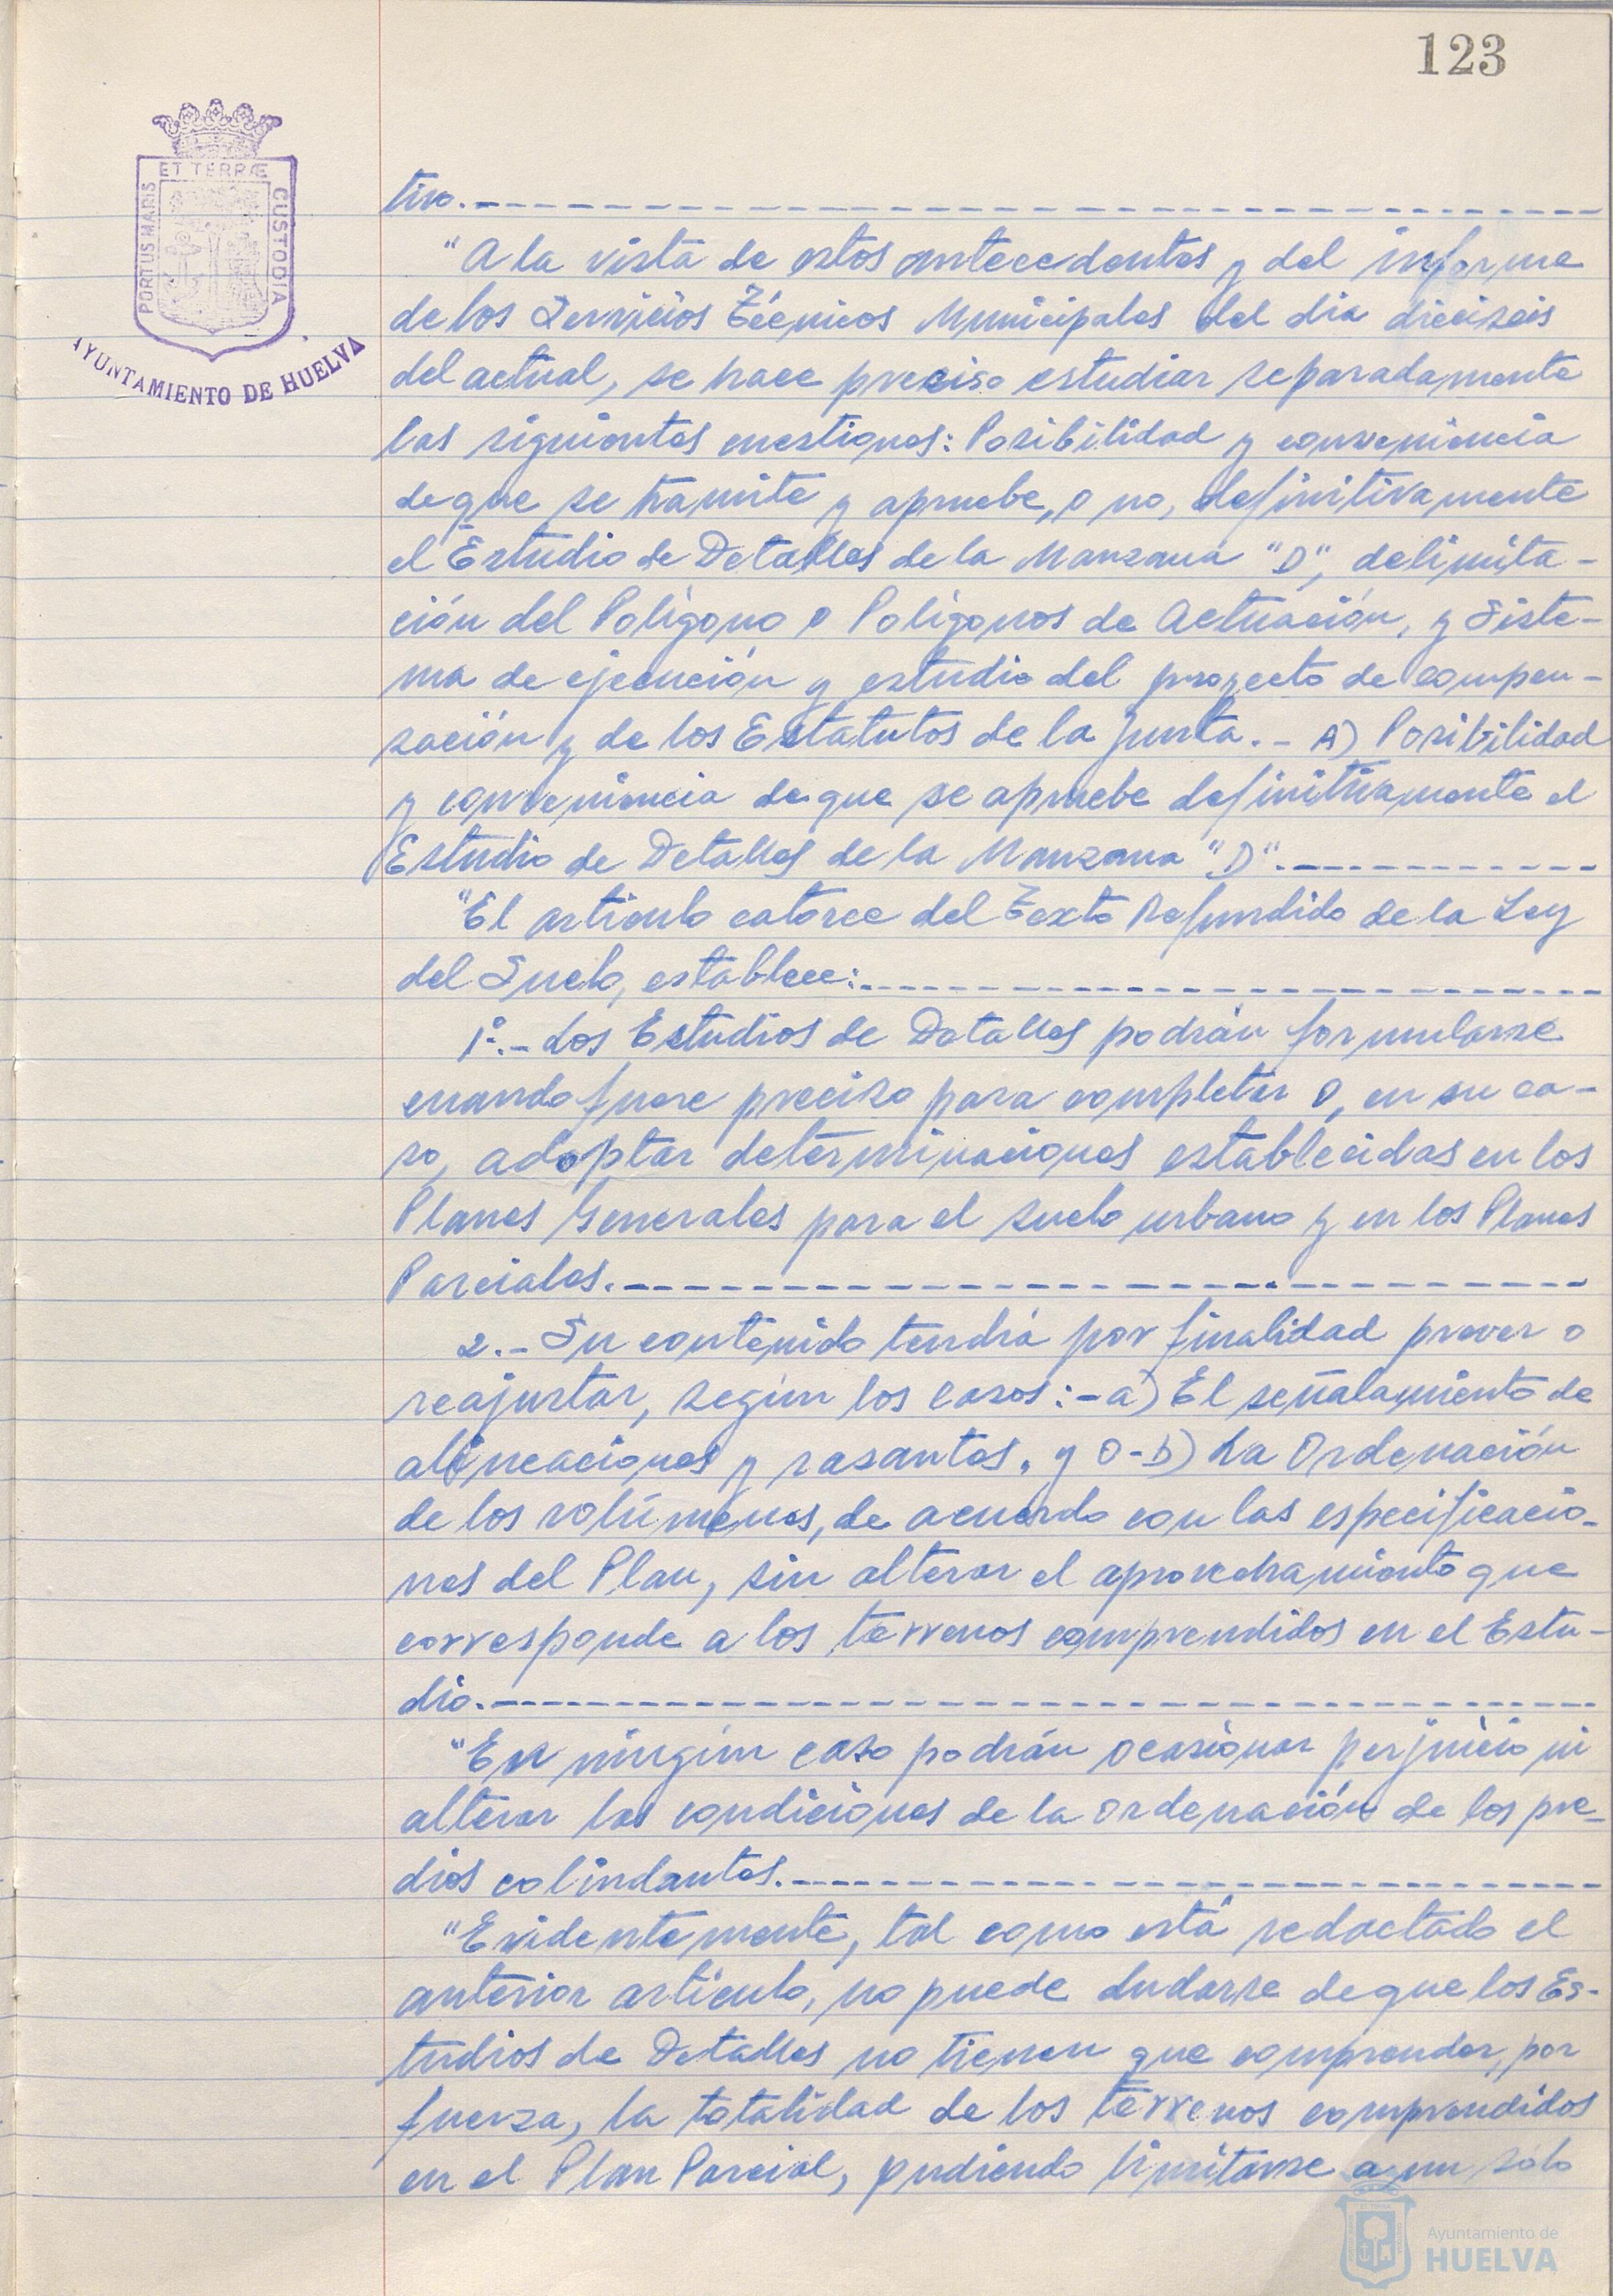 123
PORTUS MARIS ET TERRÆ CUSTODIA
AYUNTAMIENTO DE HUELVA
tivo.
"A la vista de estos antecedentes y del informe
de los Servicios Técnicos Municipales del dia dieciseis
del actual, se hace preciso estudiar separadamente
las siguientes cuestiones: Posibilidad y conveniencia
de que se tramite y apruebe, o no, definitivamente
el Estudio de Detalles de la Manzana "D", delimita-
ción del Polígono o Polígonos de Actuación, y Siste-
ma de ejecución y estudio del proyecto de compen-
sación y de los Estatutos de la Junta.- A) Posibilidad
y conveniencia de que se apruebe definitivamente el
Estudio de Detalles de la Manzana "D".
"El artículo catorce del Texto Refundido de la Ley
del Suelo, establece:
1º.- Los Estudios de Detalles podrán formularse
cuando fuere preciso para completar o, en su ca-
so, adoptar determinaciones establecidas en los
Planes Generales para el suelo urbano y en los Planes
Parciales.
2.- Su contenido tendrá por finalidad prever o
reajustar, según los casos:- a) El señalamiento de
alineaciones y rasantes, y O- b) La Ordenación
de los volúmenes, de acuerdo con las especificacio-
nes del Plan, sin alterar el aprovechamiento que
corresponde a los terrenos comprendidos en el Estu-
dio.
"En ningún caso podrán ocasionar perjuicio ni
alterar las condiciones de la ordenación de los pre-
dios colindantes.
"Evidentemente, tal como está redactado el
anterior artículo, no puede dudarse de que los Es-
tudios de Detalles no tienen que comprender, por
fuerza, la totalidad de los terrenos comprendidos
en el Plan Parcial, pudiendo limitarse a un sólo
Ayuntamiento de
HUELVA